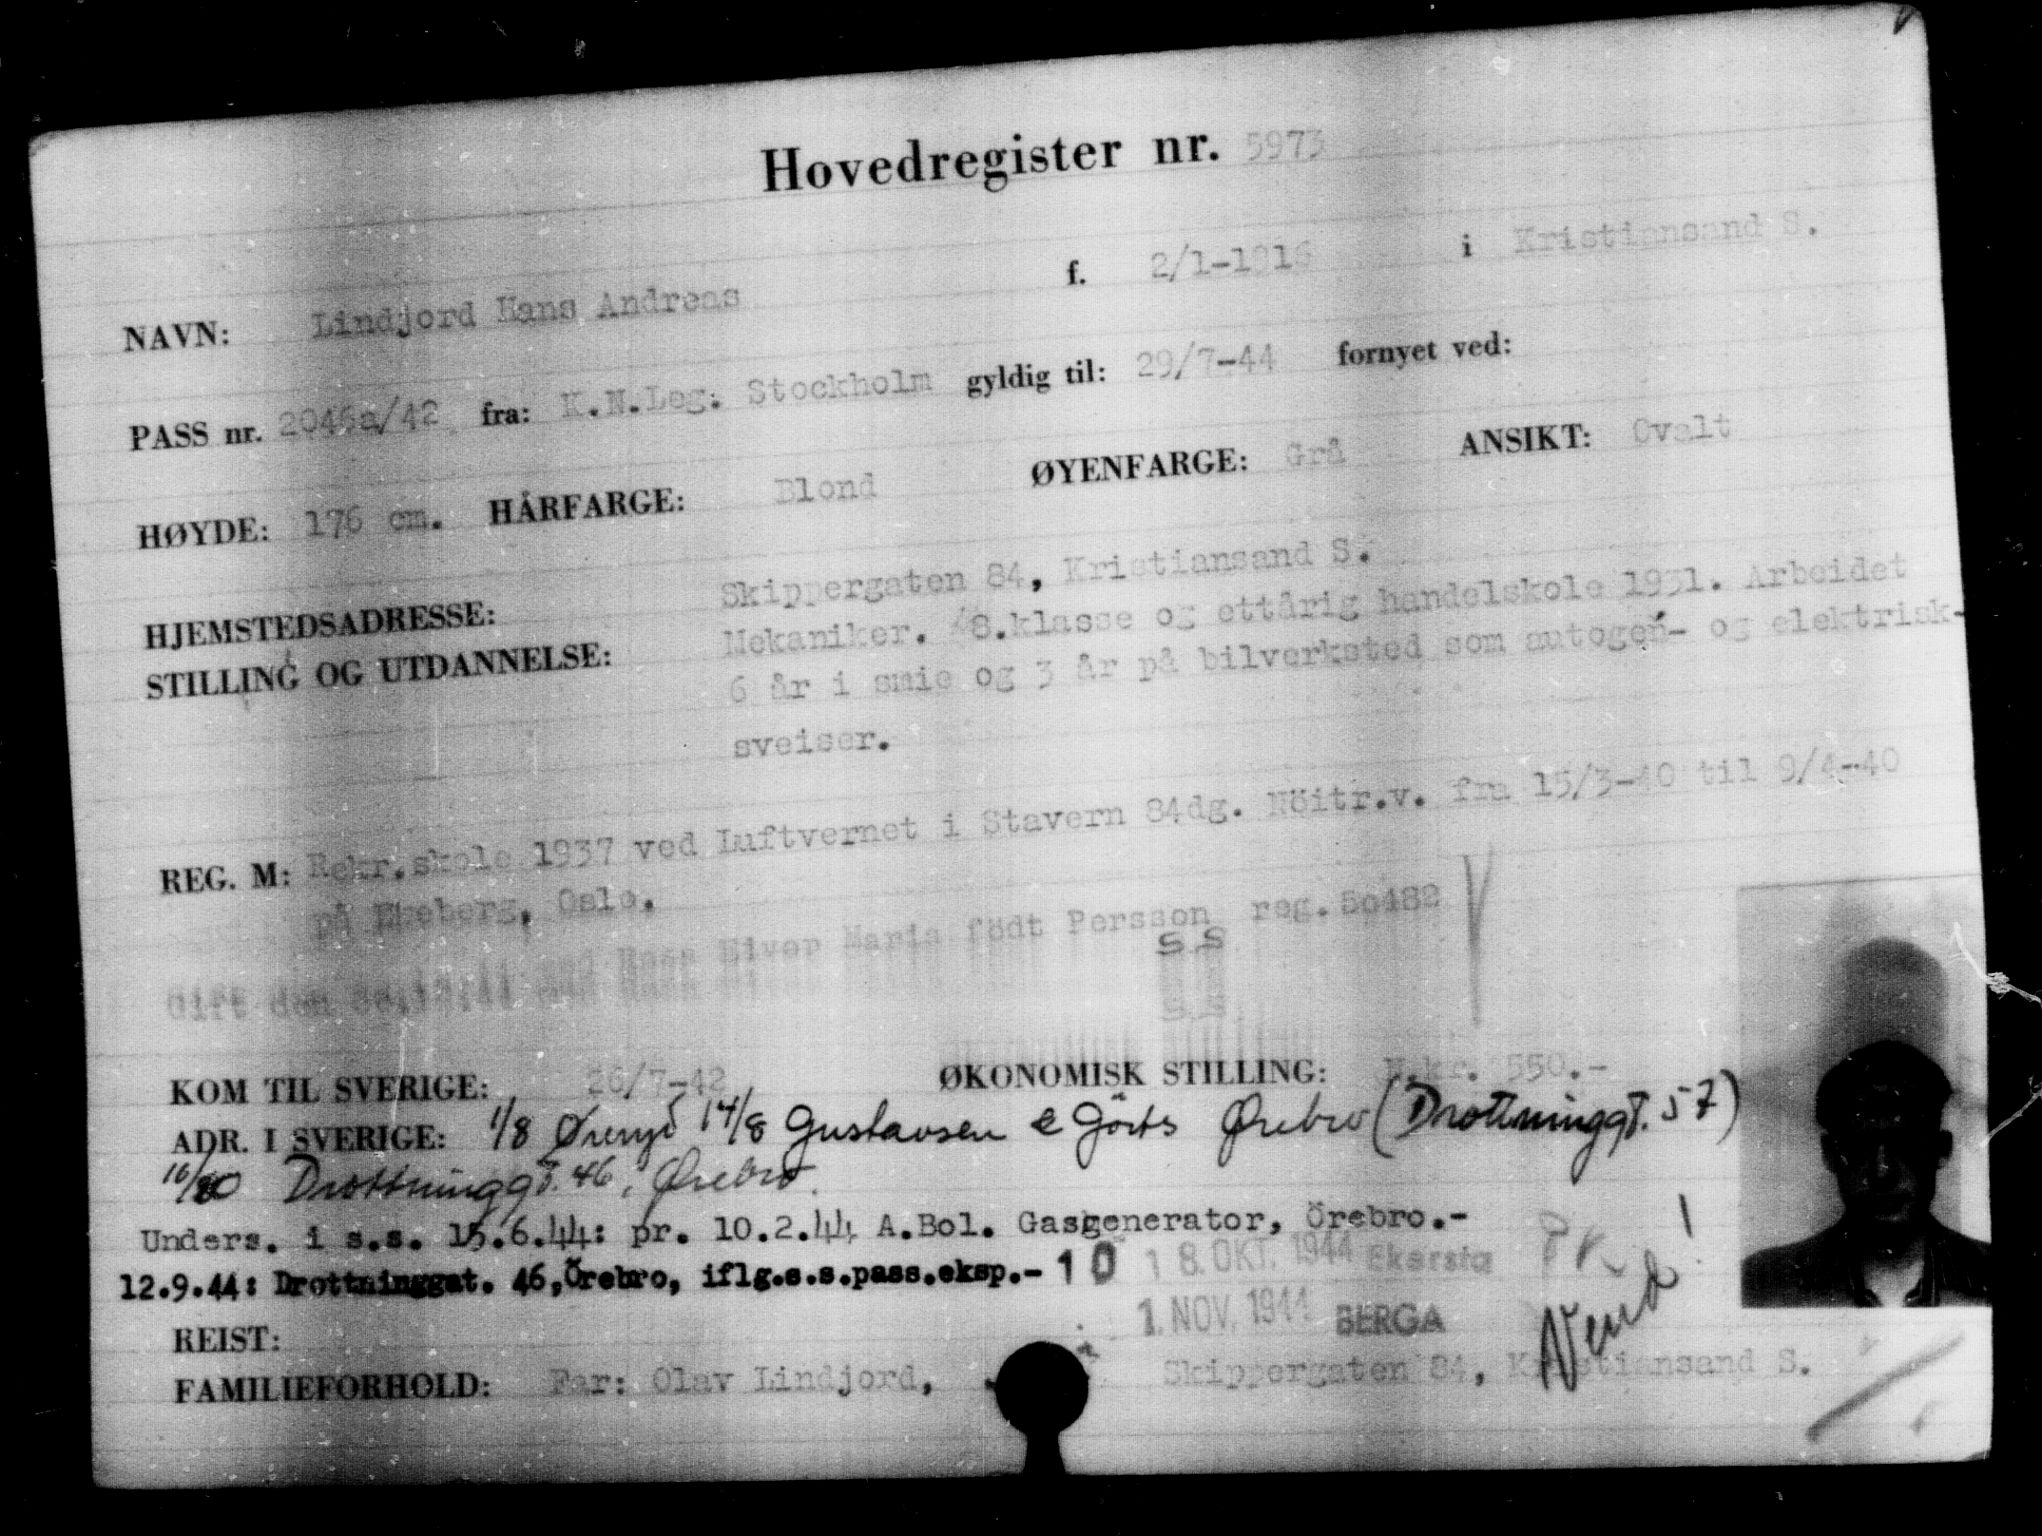 Hovedregister nr. 5973
NAVN: Lindjord Hans Andreas f. 2/1-1916 i Kristiansand S.
PASS nr. 2046a/42 fra: K.N.Leg. Stockholm gyldig til: 29/7-44 fornyet ved:
HØYDE: 176 cm. HÅRFARGE: Blond ØYENFARGE: Grå ANSIKT: Ovalt
HJEMSTEDSADRESSE: Skippergaten 84, Kristiansand S.
STILLING OG UTDANNELSE: Mekaniker. 8.klasse og ettårig handelskole 1931. Arbeidet
6 år i smie og 3 år på bilverksted som autogen- og elektrisk-
sveiser.
REG. M: Rekr.skole 1937 ved Luftvernet i Stavern 84dg. Nöitr.v. fra 15/3-40 til 9/4-40
på Ekeberg, Oslo.
Gift den Maria födt Persson reg.
s.s
s.s
KOM TIL SVERIGE: 26/7-42 ØKONOMISK STILLING: N.kr. 550.-
ADR. I SVERIGE: 1/8 14/8 Gustavsen Ørebro (Drottninggt. 57)
16/10 Drottninggt. 46, Ørebro.
Unders. i s.s. 15.6.44: pr. 10.2.44 A.Bol. Gasgenerator, Örebro.-
12.9.44: Drottninggat. 46, Örebro, iflg.s.s.pass.eksp.- 10 18. OKT. 1944 Ekersta
1. NOV. 1944 BERGA
Vend!
REIST:
FAMILIEFORHOLD: Far: Olav Lindjord, Skippergaten 84, Kristiansand S.